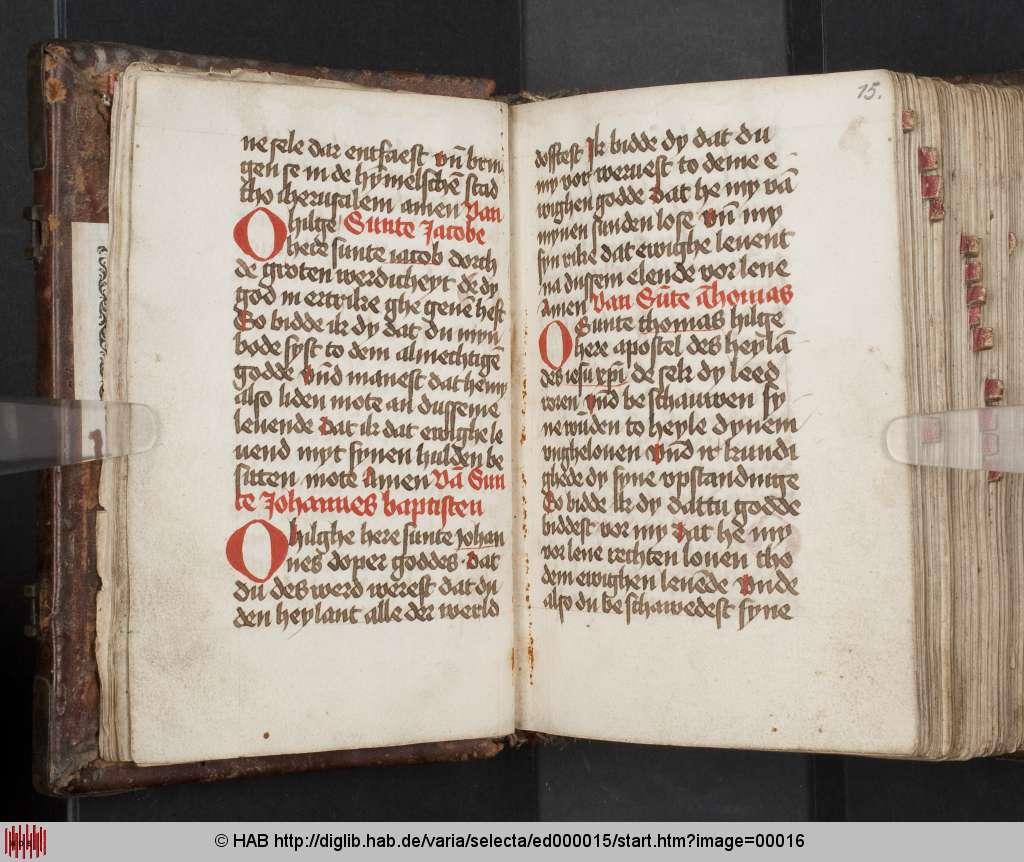 ne sele dar entfaest vn̄ brin
gen se in de hȳmelschē stad
tho iherusalem amen Van
O hilge Sunte Jacobe
here sunte iacob dorch
de groten werdicheyt de dy
god in ertrike ghe geuē hest
So bidde ik dy dat du myn
bode syst to dem almechtigē
godde vnd manest dat he my
also liden mote an dusseme
leuende dat ik dat ewighe le
uend myt synen hulden be
sitten mote Amen Vā Sun
te Johannes baptisten
O hilghe here sunte johan
nes doper goddes dat
du des werd werest dat du
den heylant alle der werld
15.
dofftest Ik bidde dy dat du
my vor weruest to deme e
wighen godde dat he my vā
mynen sunden lose vn̄ my
syn rike dat ewighe leuent
na dussem elende vor lene
Amen Van Sūte Thomas
O Sunte thomas hilge
here apostel des heylā
des iesu xp̄i de sek dy leed
voren vnd be schauwen sy
ne wūden to heyle dynem
vnghelouen vnd vt kundi
ghede dy syne vpstandinge
So bidde ik dy dattu godde
biddest vor my dat he my
vor lene rechten louen tho
dem ewighen leuēde vnde
also du be schawedest syne
© HAB http://diglib.hab.de/varia/selecta/ed000015/start.htm?image=00016